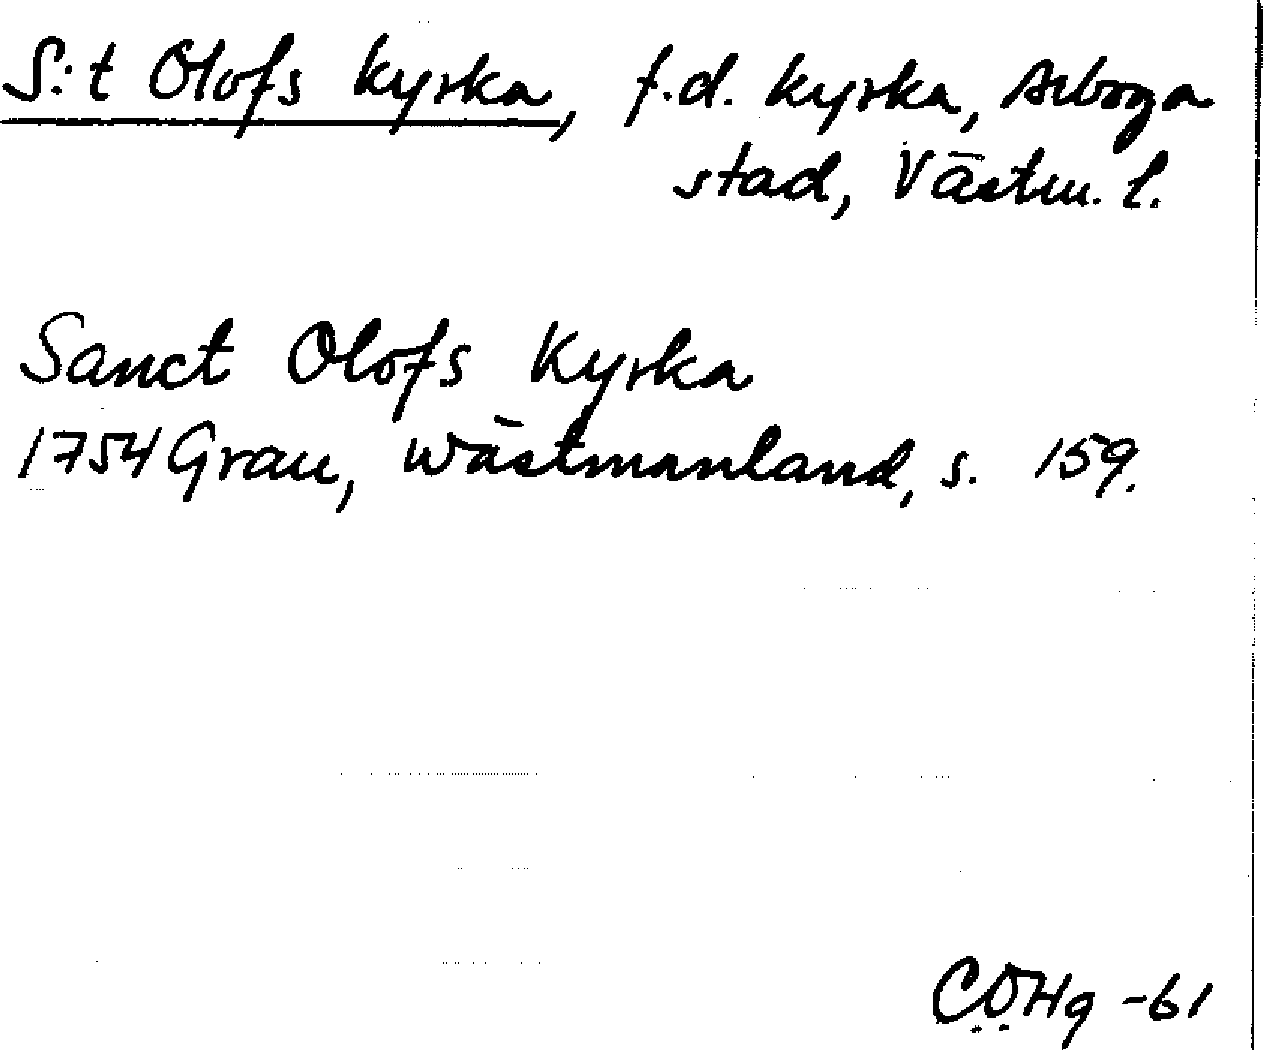 S:t Olofs kyrka, f.d. kyrka, Arboga
stad, Västm. l.
Sanct Olofs Kyrka
1754 Grau, Wästmanland, s. 159.
COHg -61